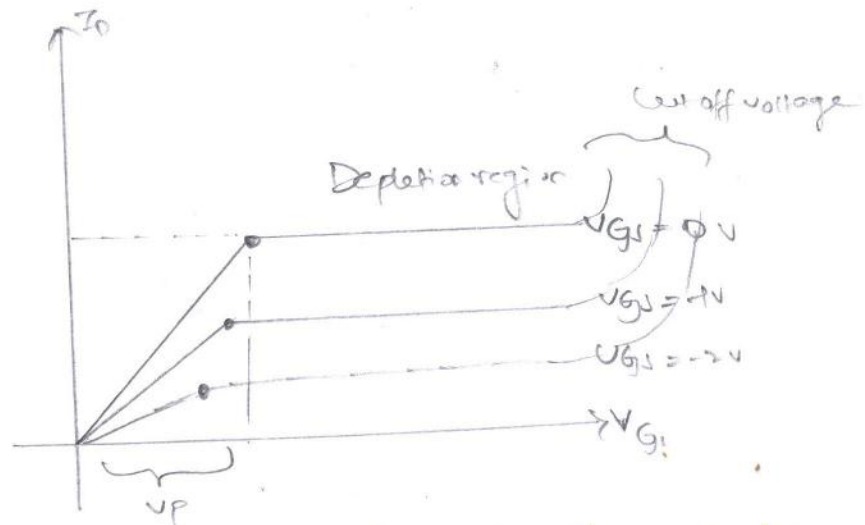 I_D
Cut off voltage
Depletion region
VGS = 0 V
VGS = -1V
VGS = -2V
VG
VP